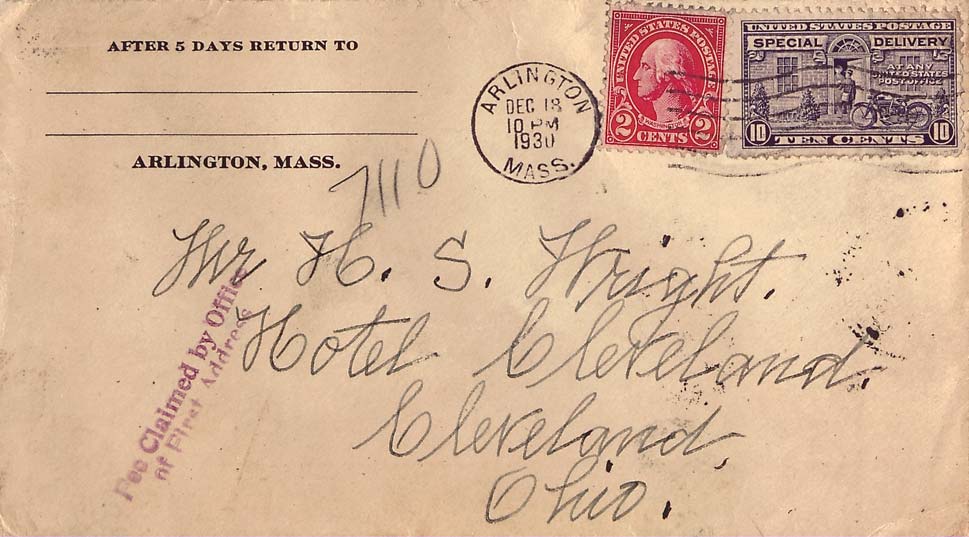 AFTER 5 DAYS RETURN TO
ARLINGTON, MASS.
ARLINGTON
DEC 18
10 PM
1930
MASS.
UNITED STATES POSTAGE
WASHINGTON
2 CENTS 2
UNITED STATES POSTAGE
SPECIAL DELIVERY
AT ANY
UNITED STATES
POST OFFICE
10 TEN CENTS 10
7110
Mr H. S. Wright.
Hotel Cleveland.
Cleveland,
Ohio.
Fee Claimed by Office
of First Address